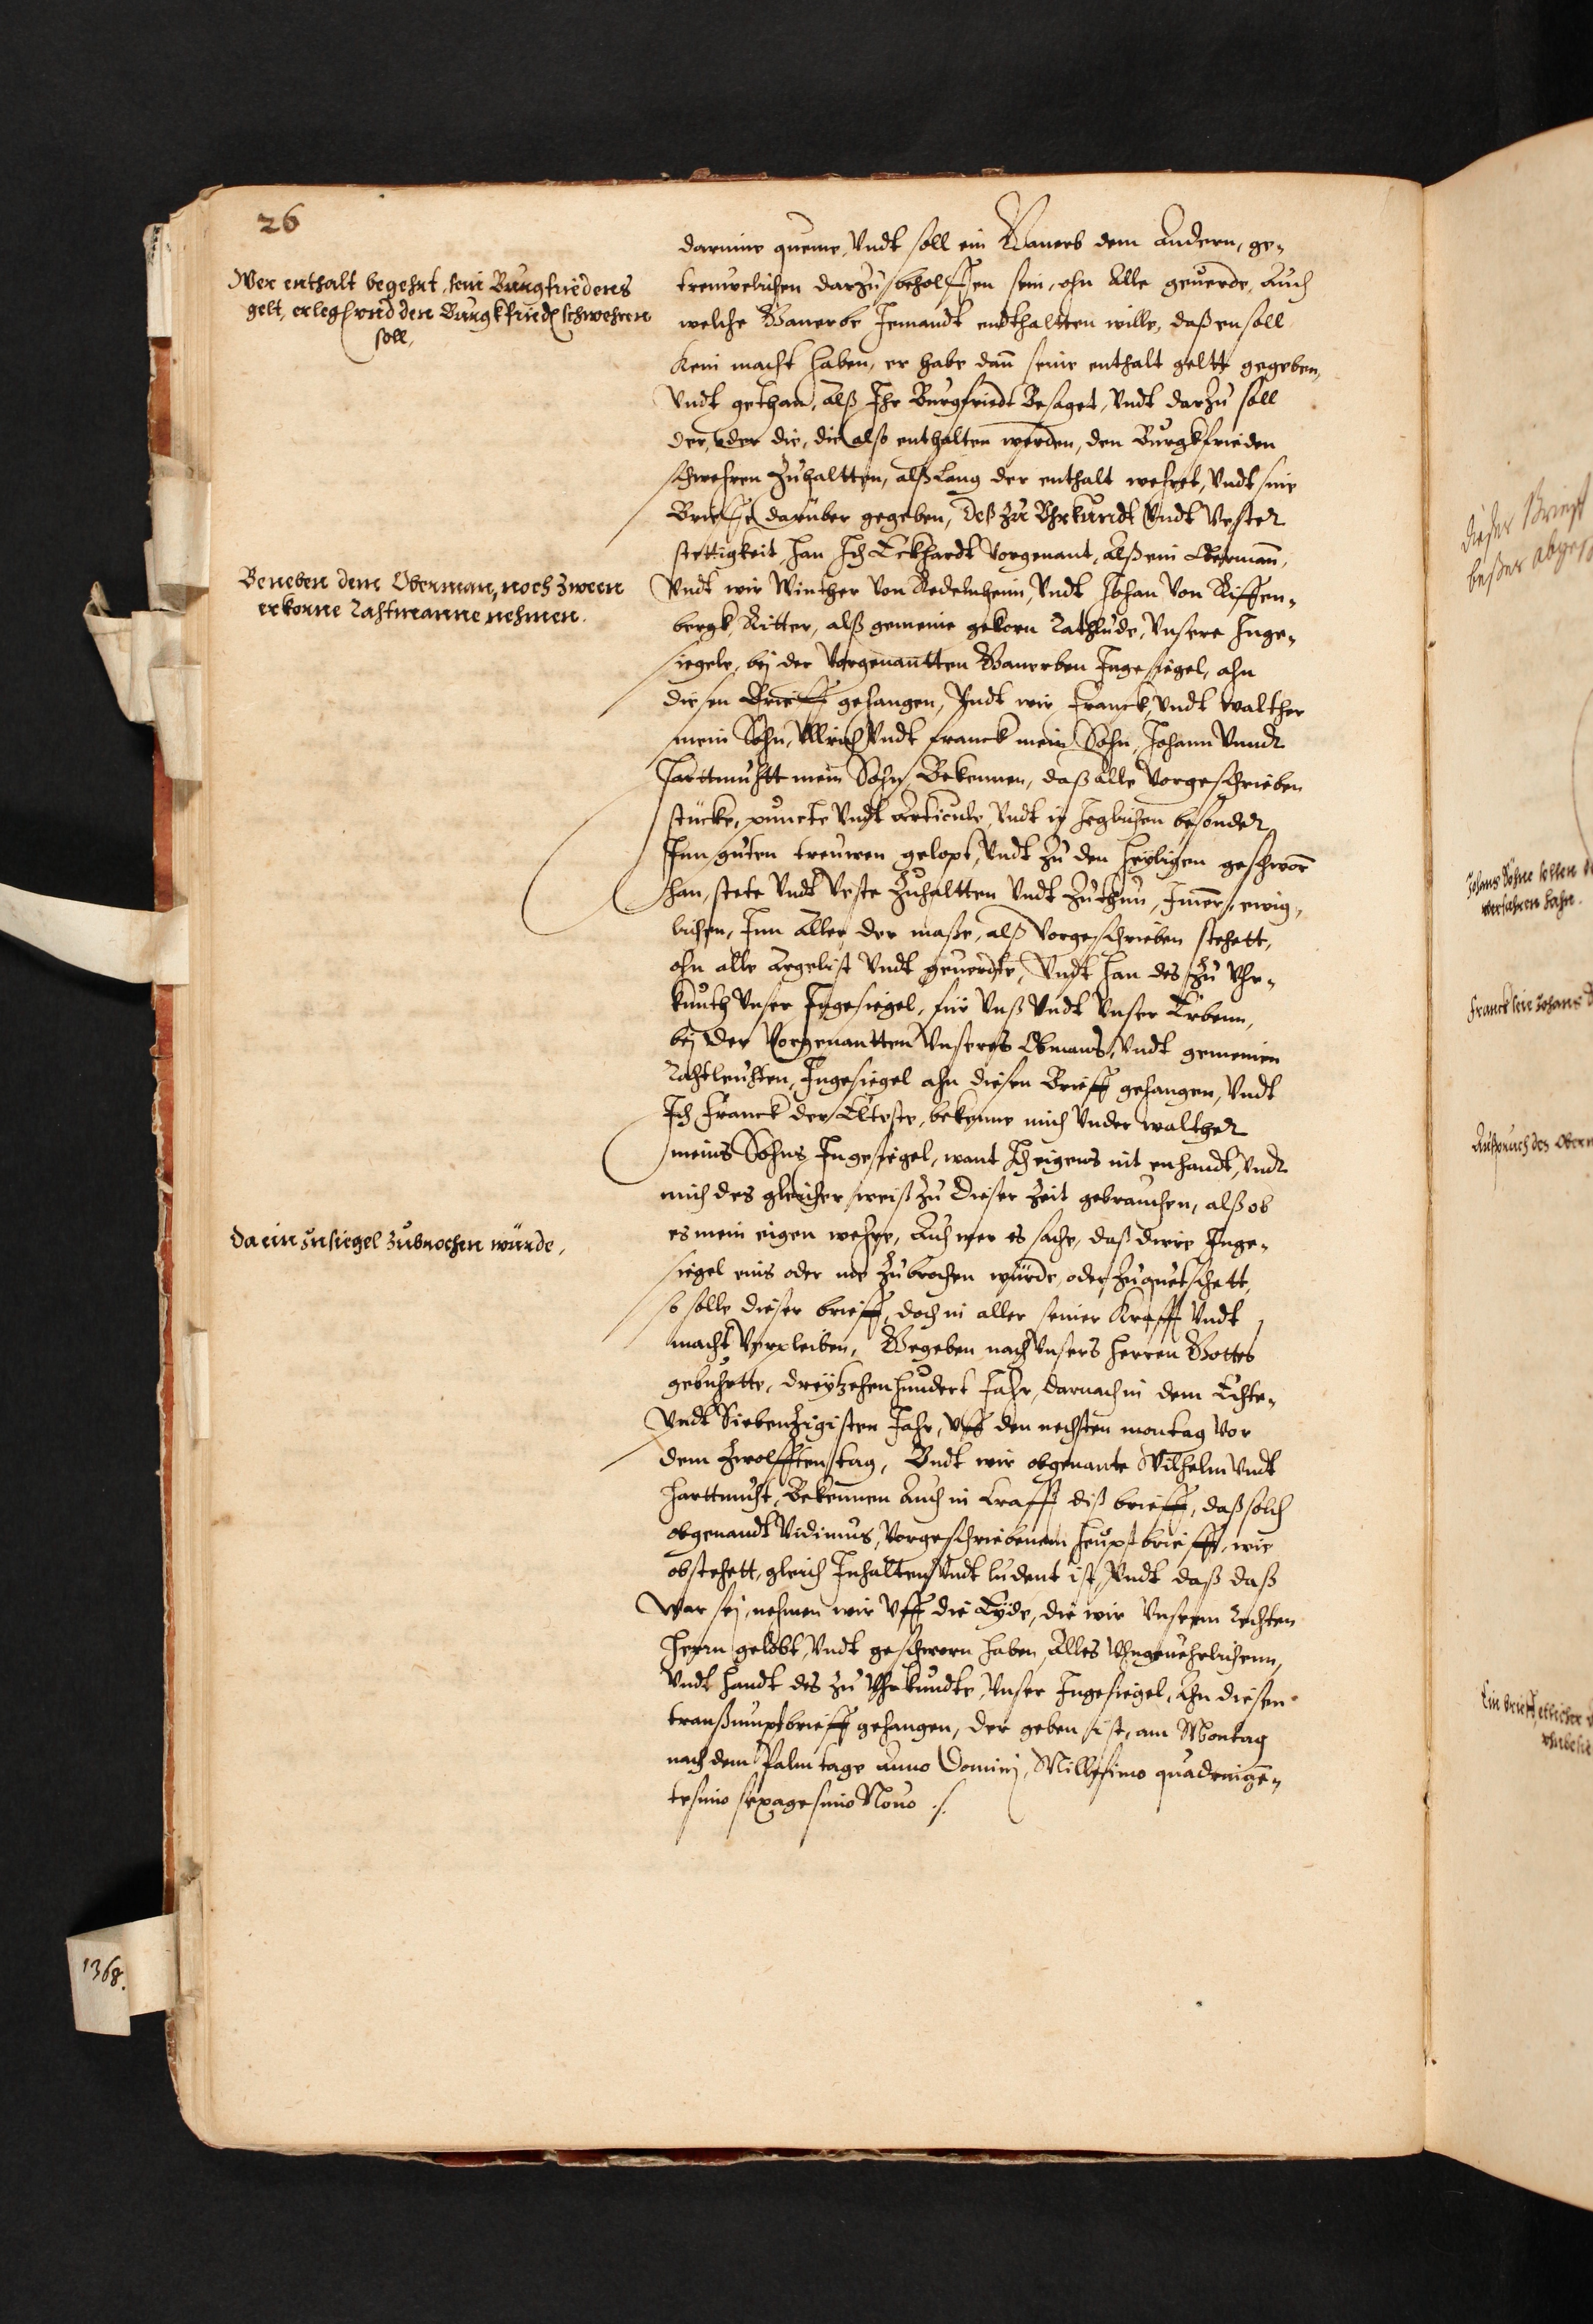 26
darinne queme, Vndt soll ein Ganerb dem Andern, ge-
treuwelichen darzu beholffen sein, ohn Alle geuerde, Auch
welche Ganerbe Jemandt endthaltten wille, daß en soll
Kein macht haben, er habe dan̄ seine enthalt geltt gegeben,
Vndt gethan, Alß Ihr Burgfriedt Besaget, Vndt darzu soll
der, oder die, die also enthalten werden, den Burgkfrieden
schwehren Zuhaltten, alß lang der enthalt wehret, Vndt sine
Brieffe darüber gegeben, Deß zu Vhrkundt Vndt Vester
stettigkeit, han Ich Eckhardt Vorgenant, Alß ein Oberman̄,
Vndt wir Winther von Redelnheim, Vndt Johan von Riffen-
bergk, Ritter, alß gemeine gekorn Rathlude, Vnsere Inge-
siegele, bej der Vorgenantten Ganerben Ingesiegel, ahn
diesen Brieff gehangen, Vndt wir Franck, Vndt Walther
mein Sohn, Vllrich Vndt Franck mein Sohn, Johann Vnndt
Harttmuhtt mein Sohn, Bekennen, daß Alle Vorgeschrieben
stücke, puncte Vndt Articule, Vndt ir Jeglichen besonder
Inn guten treuwen gelopt, Vndt zu den heyligen geschworn
han, stete Vndt Veste Zuhaltten Vndt Zuthun, Immer, ewig-
lichen, Inn Aller der masse, alß Vorgeschrieben stehett,
ohn alle Argelist Vndt geuerdte, Vndt han des Zu Vhr-
kunth Vnser Ingesiegel, für Vnß Vndt Vnser Erbenn,
bej der Vorgenantten Vnseres Obmans, Vndt gemeinen
Rahtleuhten, Ingesiegel ahn diesen Brieff gehangen, Vndt
Ich Franck der Elteste, bekenne mich Vnder Walther
meins Sohns Ingesiegel, want Ich eigens nit enhandt, Vndt
mich des gleicher weiß Zu dieser Zeit gebrauchen, alß ob
es mein eigen wehre, Auch wer es sache, daß dirre Inge-
siegel eins oder me Zubrochen würde, oder Zuquetschett,
so solle dieser brieff, doch in aller seiner Krafft Vndt
macht Verpleiben, Gegeben nach Vnsers Herren Gottes
gebuhrtte, dreytzehenhundert Jahr, darnach in dem Echte-
Vndt Siebenzigisten Jahr, Vff den nechsten montag Vor
dem Zwolfften tag, Vndt wir obgenante Wilhelm Vndt
Harttmuht, Bekennen Auch in Crafft diß brieff, daß solch
obgenandt Vidimus, Vorgeschriebenem Heuptbrieff, wie
obstehett, gleich Inhalten Vndt ludent ist, Vndt daß daß
War sej, nehmen wir Vff die Eyde, die wir Vnserm Rechten
Herrn gelobt, Vndt geschworn haben, Alles Vngeuehrlichenn,
Vndt handt des Zu Vhrkundte, Vnser Ingesiegel, Ahn diesen
transsumptbrieff gehangen, der geben ist, am Montag
nach dem Palmtage Anno Dominj, Millesimo quadringen-
tesimo sexagesimo Nouo ./.
Wer enthalt begehrt, sein Burgfriedens
gelt, erleg, vnd den Burgkfried schwehren
soll,
Beneben dem Oberman, noch Zween
erkorne Rahtmanne nehmen.
Da ein Insiegel Zubrochen würde,
1368.
dieser Brieff
Johans Söhne sollen
Franck sein Johans
Ausspruch des Ober
Ein brieff, etlicher